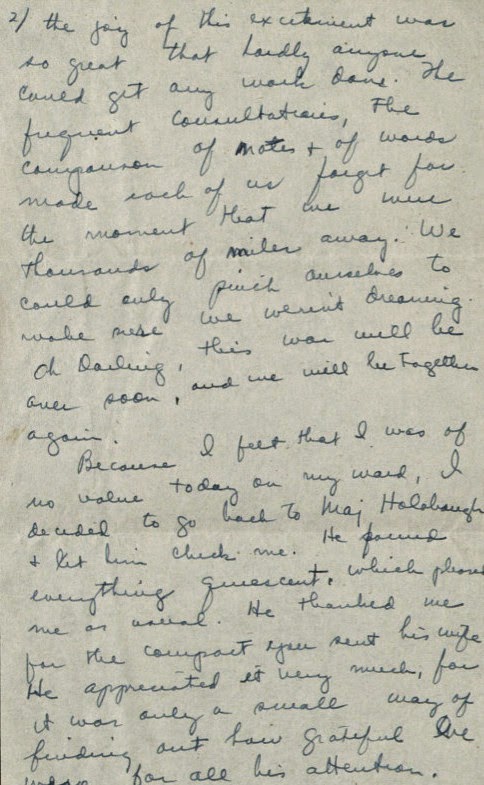 2/ the joy of this excitement was
so great that hardly anyone
could get any work done. The
frequent consultations, the
comparison of notes + of words
made each of us forget for
the moment that we were
thousands of miles away. We
could only pinch ourselves to
make sure we weren't dreaming.
Oh Darling, this war will be
over soon, and we will be together
again.
Because I felt that I was of
no value today on my ward, I
decided to go back to Maj Holobaugh
+ let him check me. He found
everything quiescent, which pleased
me as usual. He thanked me
for the compact you sent his wife
He appreciated it very much, for
it was only a small way of
finding out how grateful we
were for all his attention.